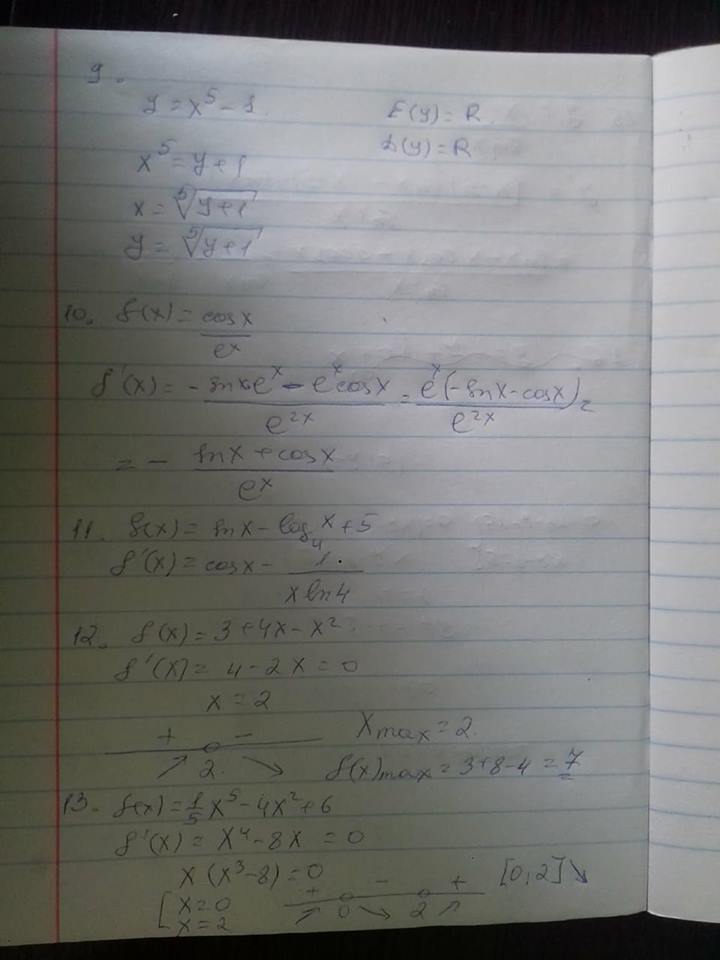 9.
y = x⁵ - 1 E(y) = R
x⁵ = y + 1 D(y) = R
x = ⁵√(y+1)
y = ⁵√(y+1)
10. f(x) = cosx / eˣ
f'(x) = (-sinx·eˣ - eˣcosx) / e²ˣ = eˣ(-sinx - cosx) / e²ˣ =
= - (sinx + cosx) / eˣ
11. f(x) = sinx - log₄x + 5
f'(x) = cosx - 1 / (x ln4)
12. f(x) = 3 + 4x - x²
f'(x) = 4 - 2x = 0
x = 2
+ - Xmax = 2.
↗ 2 ↘ f(x)max = 3+8-4 = 7
13. f(x) = 1/5 x⁵ - 4x² + 6
f'(x) = x⁴ - 8x = 0
x(x³ - 8) = 0
+ - + [0; 2] ↘
[ x = 0 ↗ 0 ↘ 2 ↗
x = 2